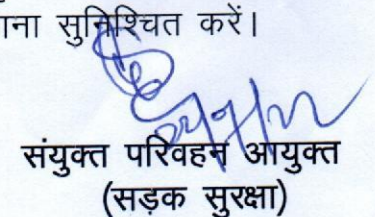 ाना सुनिश्चित करें।
संयुक्त परिवहन आयुक्त
(सड़क सुरक्षा)